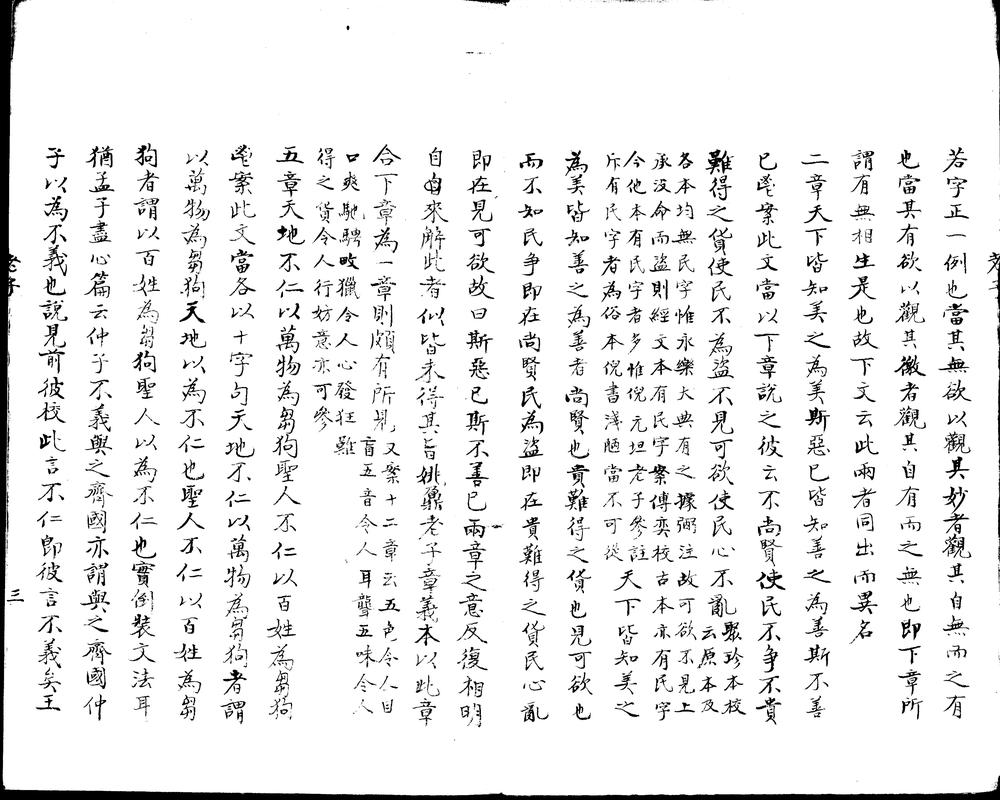 若字正一例也當其無欲以觀其妙者觀其自無而之有
也當其有欲以觀其徼者觀其自有而之無也即下章所
謂有無相生是也故下文云此兩者同出而異名
二章天下皆知美之為美斯惡已皆知善之為善斯不善
已鬯案此文當以下章說之彼云不尚賢使民不争不貴
難得之貨使民不為盜不見可欲使民心不亂
聚珍本校
云原本及
各本均無民字惟永樂大典有之據弼注故可欲不見上
承没命而盜則經文本有民字案傅奕校古本亦有民字
今他本有民字者多惟倪元坦老子參註
斥有民字者為俗本倪書淺陋當不可從
天下皆知美之
為美皆知善之為善者尚賢也貴難得之貨也見可欲也
而不知民争即在尚賢民為盜即在貴難得之貨民心亂
即在見可欲故曰斯惡已斯不善已兩章之意反復相明
自來解此者似皆未得其旨姚鼐老子章義本以此章
合下章為一章則頗有所見
又案十二章云五色令人目
盲五音令人耳聾五味令人
口爽馳騁畋獵令人心發狂難
得之貨令人行妨意亦可參
五章天地不仁以萬物為芻狗聖人不仁以百姓為芻狗
鬯案此文當各以十字句天地不仁以萬物為芻狗者謂
以萬物為芻狗天地以為不仁也聖人不仁以百姓為芻
狗者謂以百姓為芻狗聖人以為不仁也實倒裝文法耳
猶孟子盡心篇云仲子不義與之齊國亦謂與之齊國仲
子以為不義也說見前彼校此言不仁即彼言不義矣王
老子
三